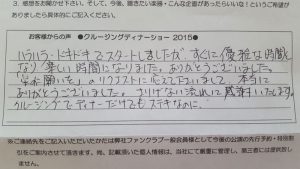 3. 感想をお聞かせ下さい。そして、今後、聴きたい楽器・こんな企画があったらいいな！というご希望が
ありましたら具体的にご記入ください。
お客様からの声 ●クルージングディナーショー 2015●
ハラハラ・ドキドキでスタートしましたが、すぐに優雅な時間と
なり楽しい時間になりました。ありがとうございました。
のリクエストに応えて下さいまして 本当に
ありがとうございました。さりげない流れに感謝いたします。
クルージングでディナーだけでもステキなのに、
※ご連絡先をご記入いただいたかたは弊社ファンクラブ一般会員様として今後の公演の先行予約・特別割
引をご案内させて頂きます。尚、ご記載頂いた個人情報は、当社にて厳重に管理し、第三者には提供致
しません。